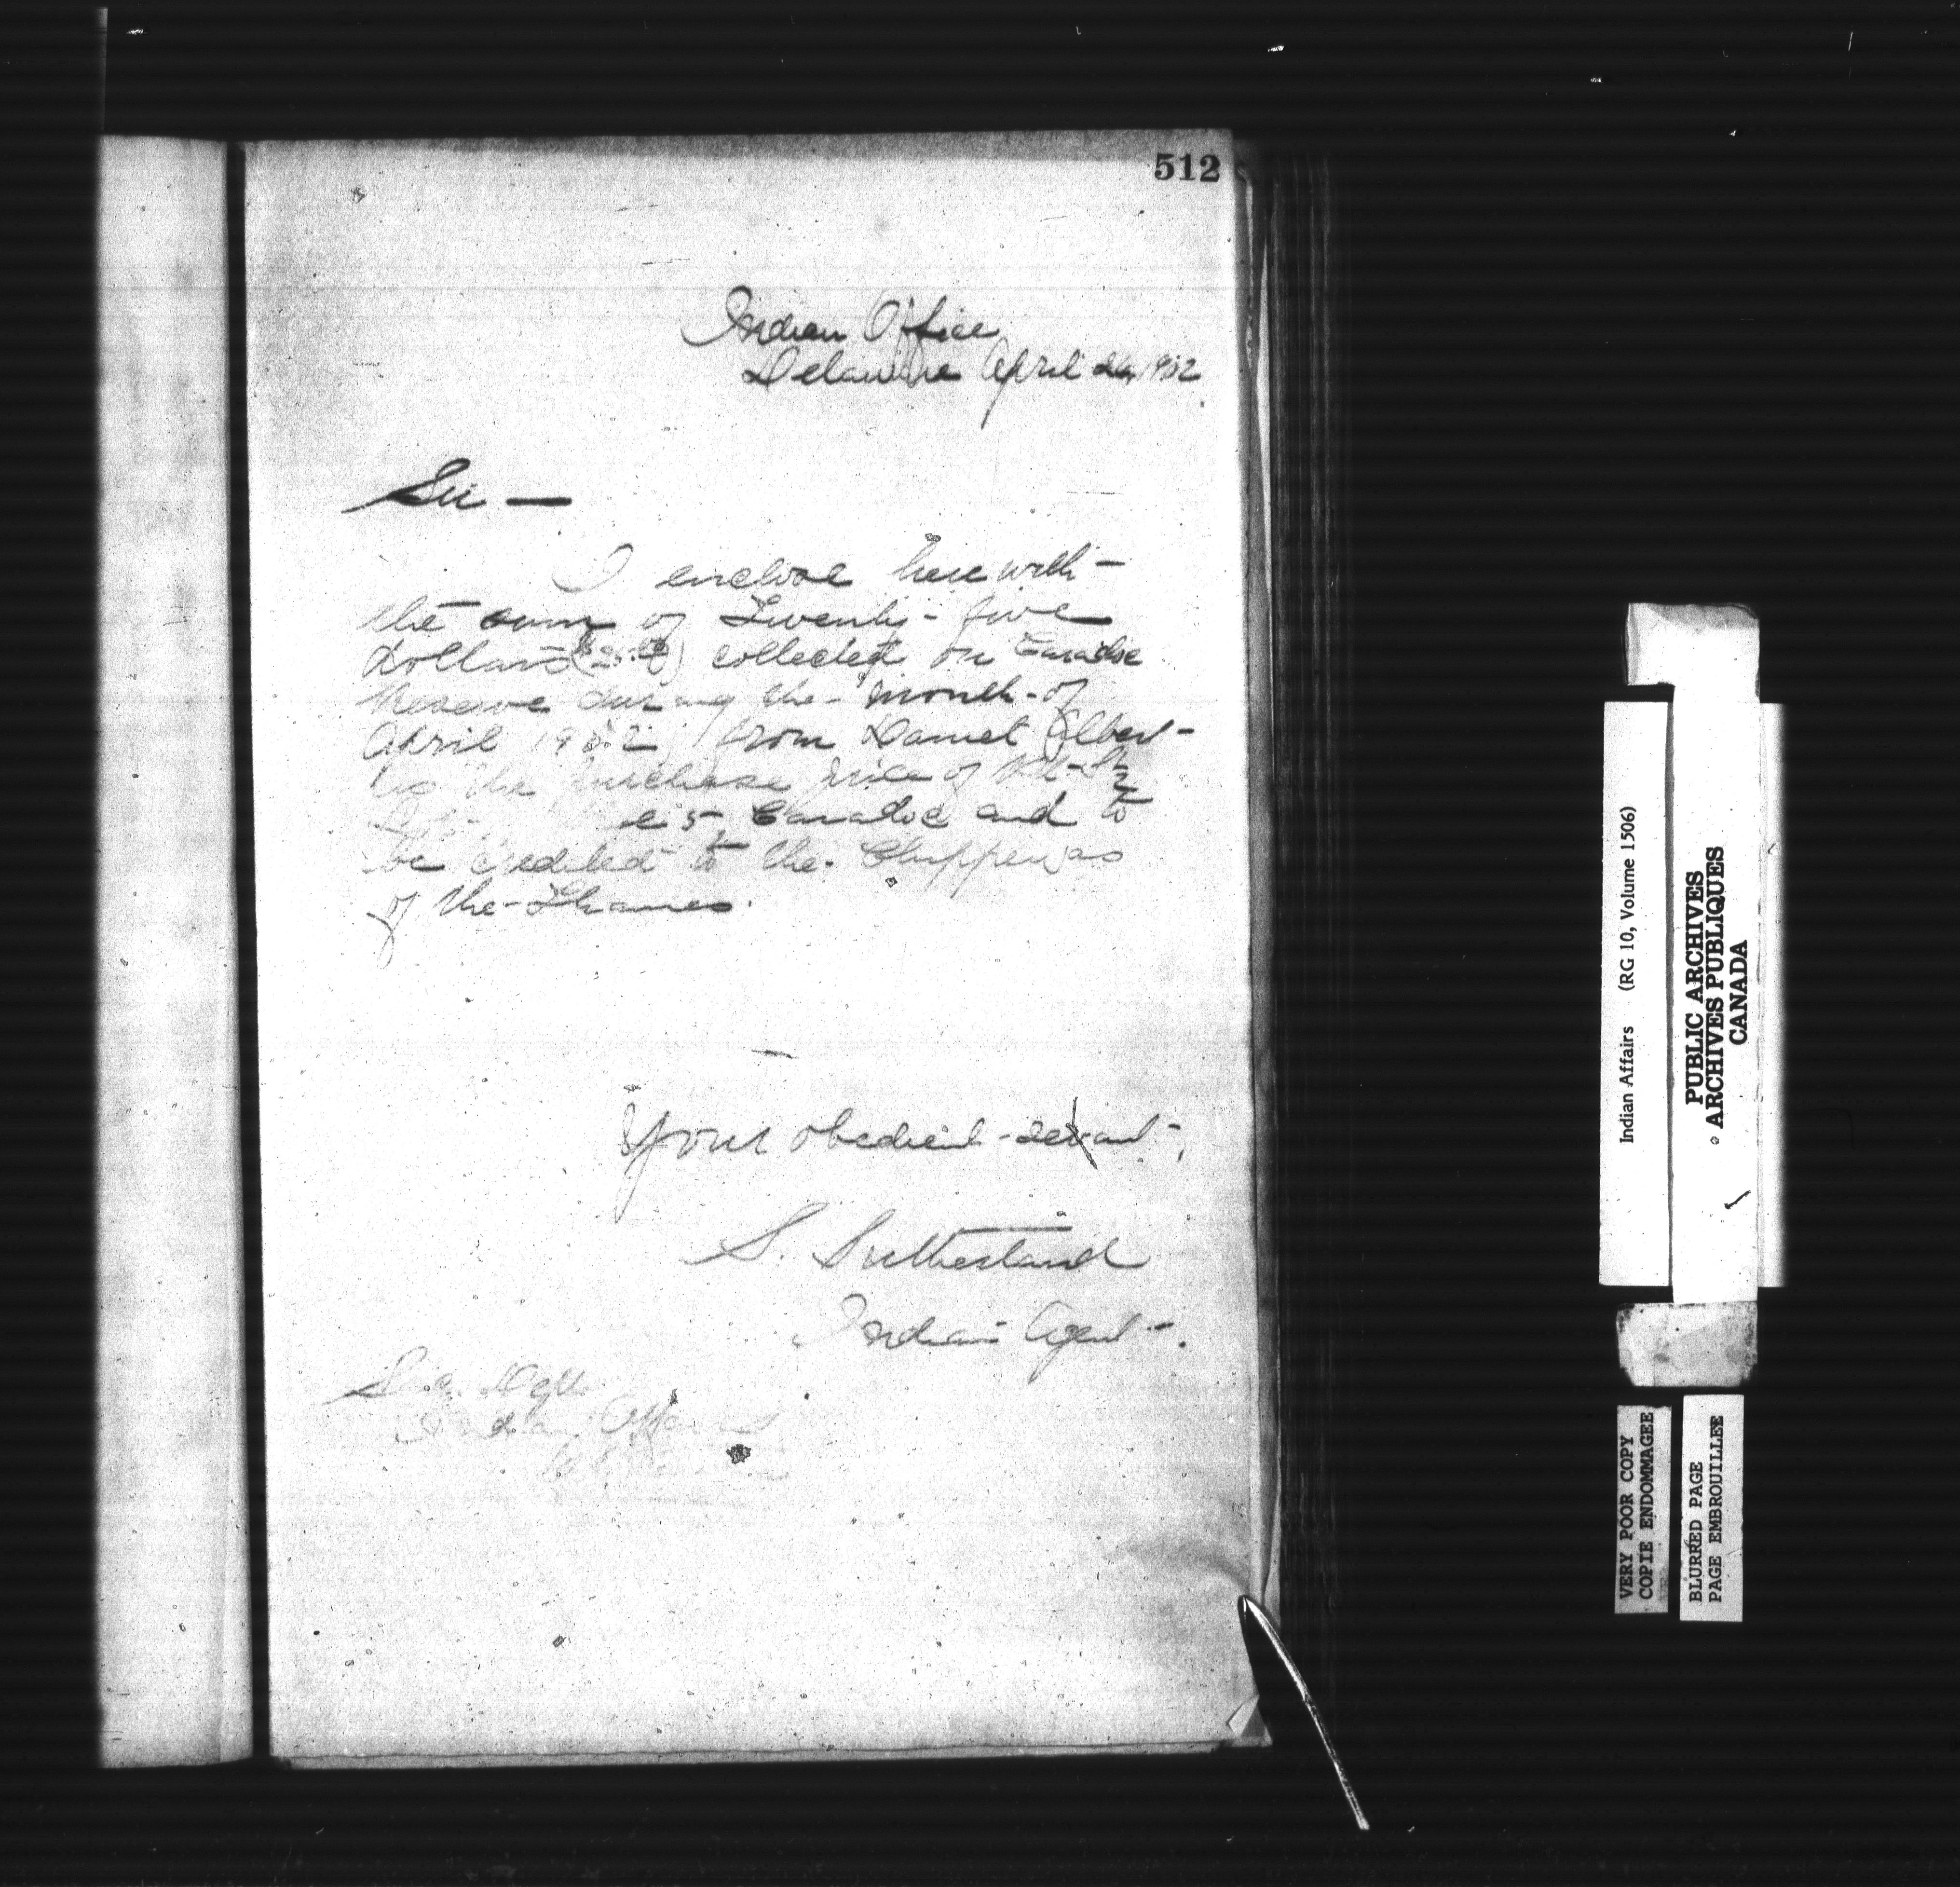 512
Indian Office
Delaware April 1902
Sir —
I enclose herewith
the sum of Twenty-five
dollars ($25.00) collected on Caradoc
Reserve during the month of
April 1902 from Daniel Albert
the purchase price of
5 Caradoc and to
be credited to the Chippewas
of the Thames.
Your obedient servant,
S. Sutherland
Indian Agent.
Sec. Dept.
Indian Affairs
Indian Affairs (RG 10, Volume 1506)
PUBLIC ARCHIVES
ARCHIVES PUBLIQUES
CANADA
VERY POOR COPY
COPIE ENDOMMAGEE
BLURRED PAGE
PAGE EMBROUILLEE